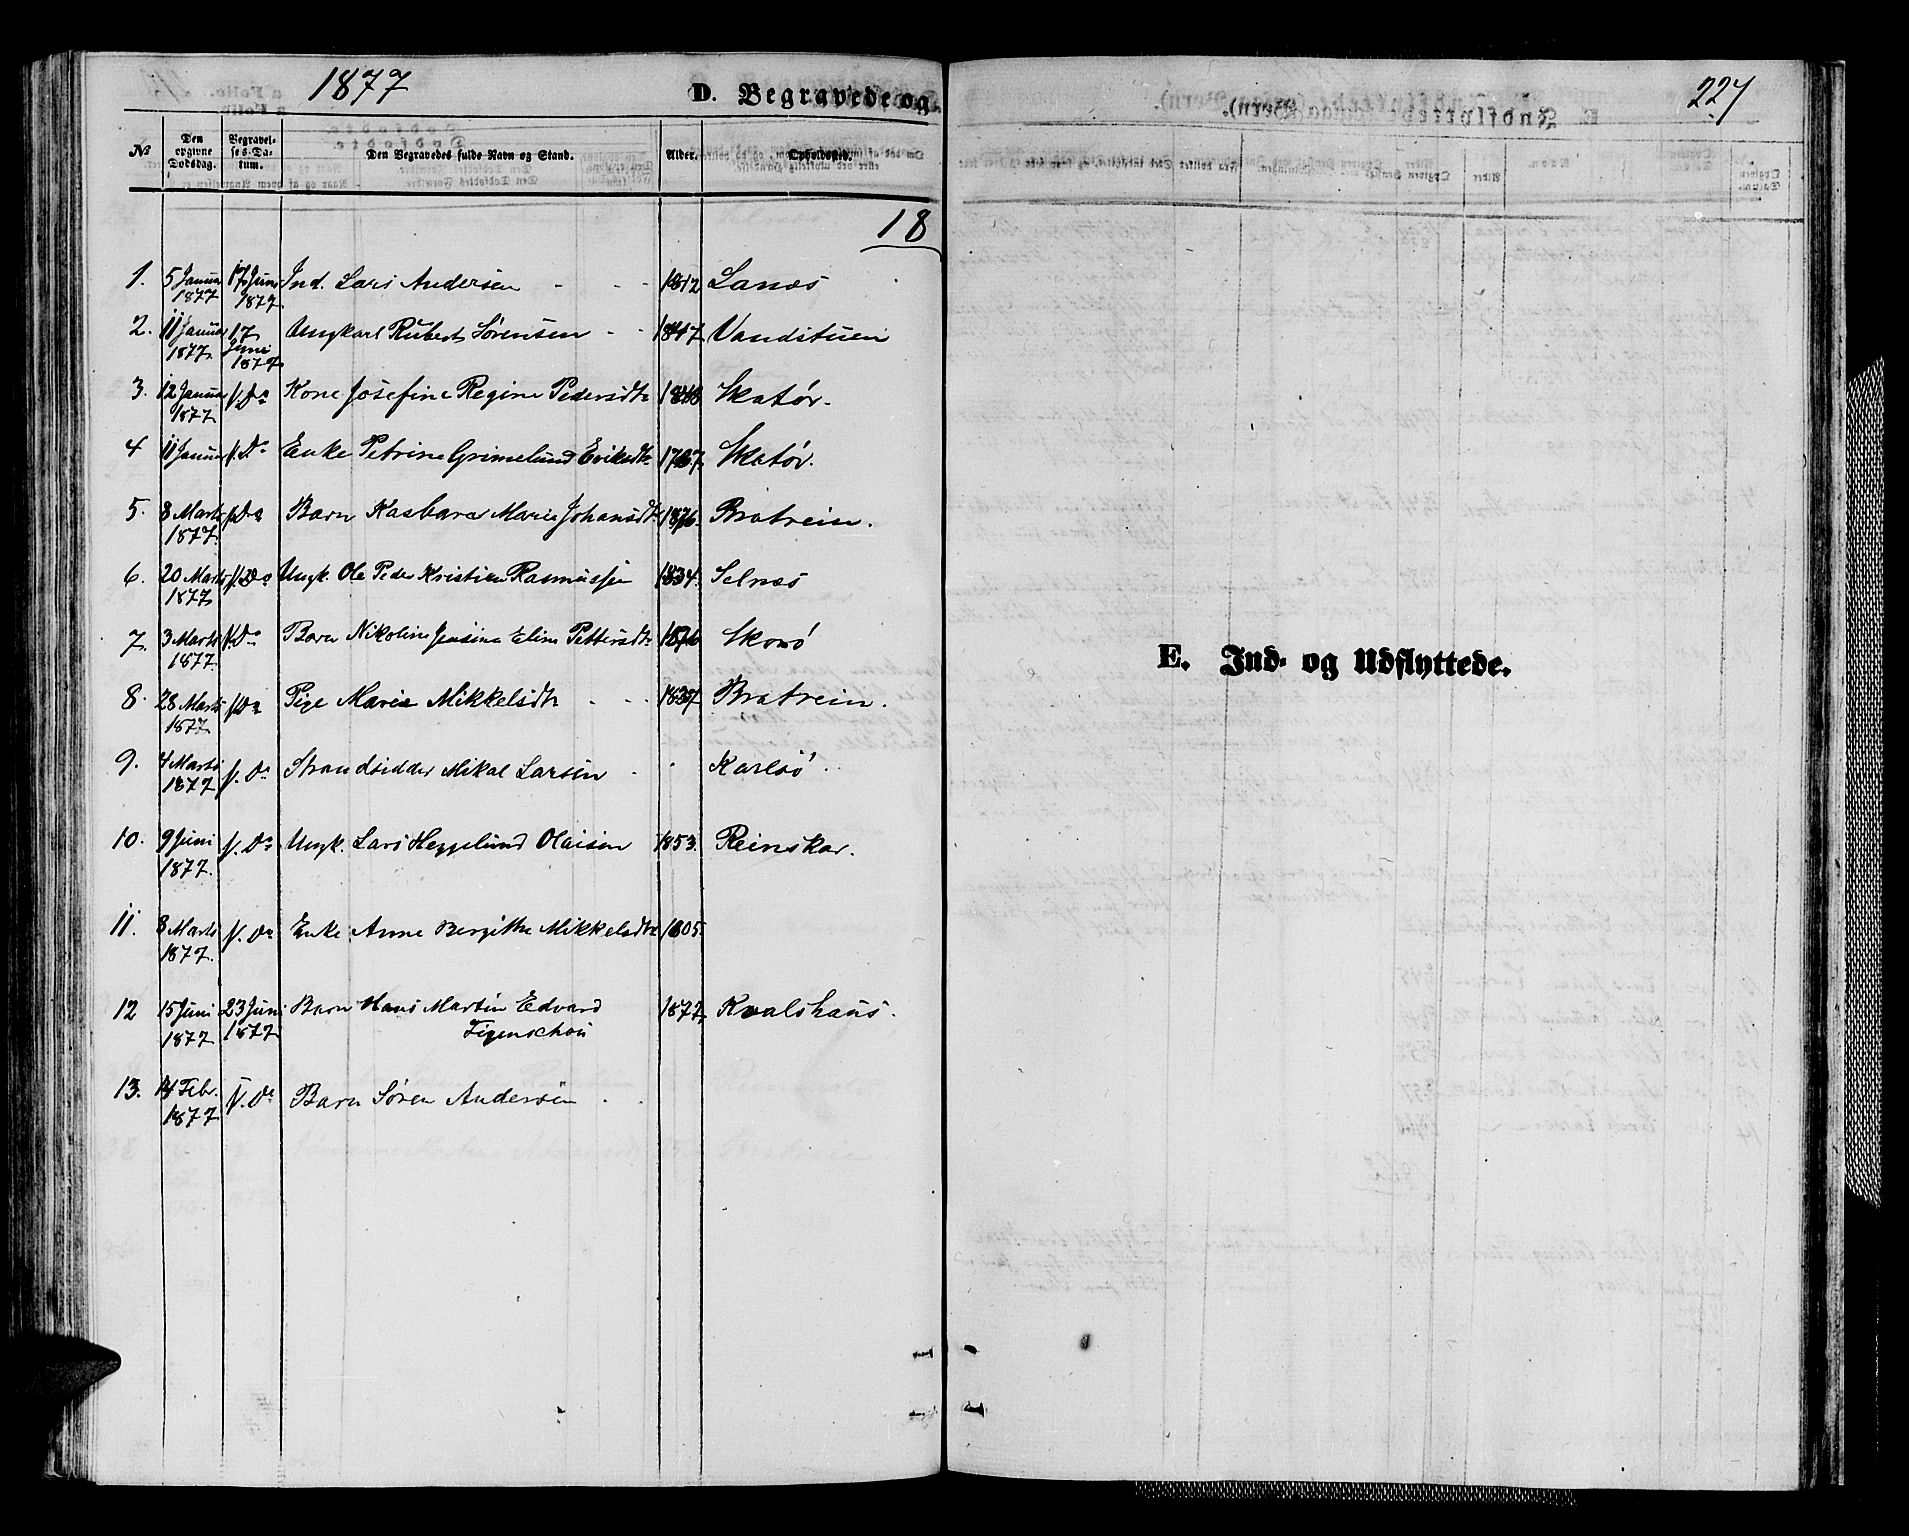 1877
D. Begravede og
№ Den opgivne Dødsdag. Begravelses-Datum. Den Begravedes fulde Navn og Stand. Alder. Opholdssted.
18
1. 5 Januar 17 Juni Ind. Lars Andersen - - - 1812 Lanæs
1877 1877
2. 11 Januar 17 Ungkarl Rubert Sørensen - - 1847. Vandstuen
1877. Juni
1877
3. 12 Januar s. Da Kone Josefine Regine Pedersdtr Skatør.
1877
4 11 Januar s. Da Enke Petrine Grimelund Eriksdtr Skatør.
5. 8 Marts s. Da Barn Kasbara Marie Johansdtr 1876. Bratrein.
1877.
6. 20 Marts s. Da Ungk. Ole Peder Kristian Rasmussen 1834. Selnæs
1877
7. 3 Marts s. Da Barn Nikoline Jensine Eline Pettersdtr 1876 Skorø
1877
8. 28 Marts s. Da Pige Maria Mikkelsdtr - - - 1837 Bratrein.
1877
9. 4 Marts s. Da Strandsidder Mikal Larsen - - Karlsø
1877
10. 9 Juni s. Da Ungk. Lars Heggelund Olaisen 1853. Reinskar.
1877
11. 8 Marts s. Da Enke Anne Bergithe Mikkelsdtr 1805.
1877.
12 15 Juni 23 Juni Barn Hans Martin Edvard 1877. Kvalshaus.
1877 1877 Figenschou
13. 14 Febr. s. Da Barn Søren Andersen - -
1877
227
E. Ind- og Udflyttede.